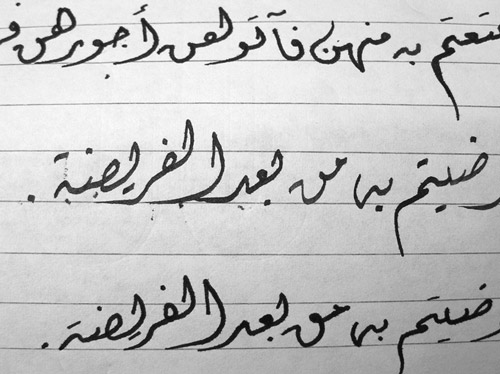 ستمتعتم به منهن فآتوهن أجورهن ف
رضيتم به من بعد الفريضة .
رضيتم به من بعد الفريضة .